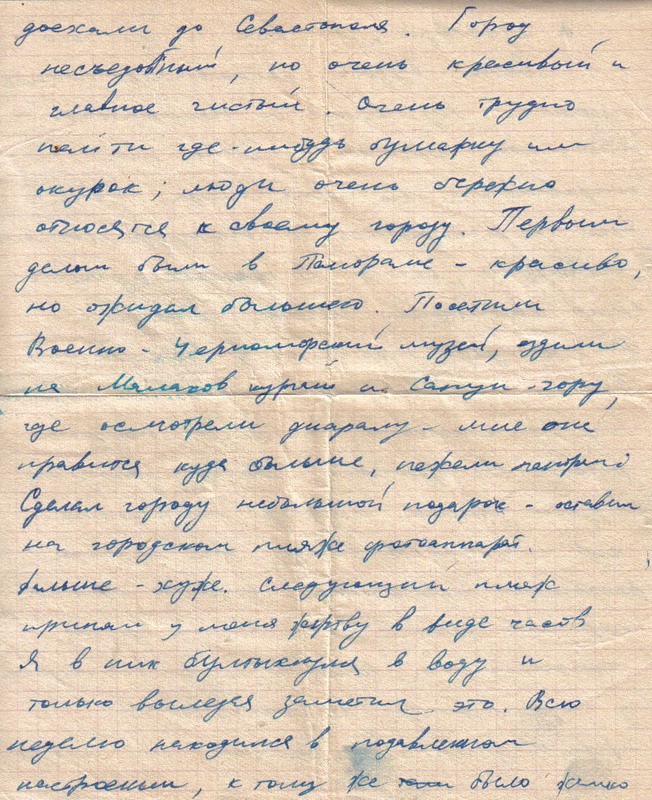 доехали до Севастополя. Город
несъедобный, но очень красивый и
главное чистый. Очень трудно
найти где-нибудь бумажку или
окурок; люди очень бережно
относятся к своему городу. Первым
делом были в Панораме - красиво,
но ожидал большего. Посетили
Военно-Черноморский музей, ездили
на Малахов курган и Сапун-гору,
где осмотрели диараму - мне она
нравится куда больше, нежели
Сделал городу небольшой подарок - оставил
на городском пляже фотоаппарат.
Больше - хуже. Следующий пляж
принял у меня жертву в виде часов
Я в них бултыхнулся в воду и
только вылезая заметил это. Всю
неделю находился в подавленном
настроении, к тому же было жалко